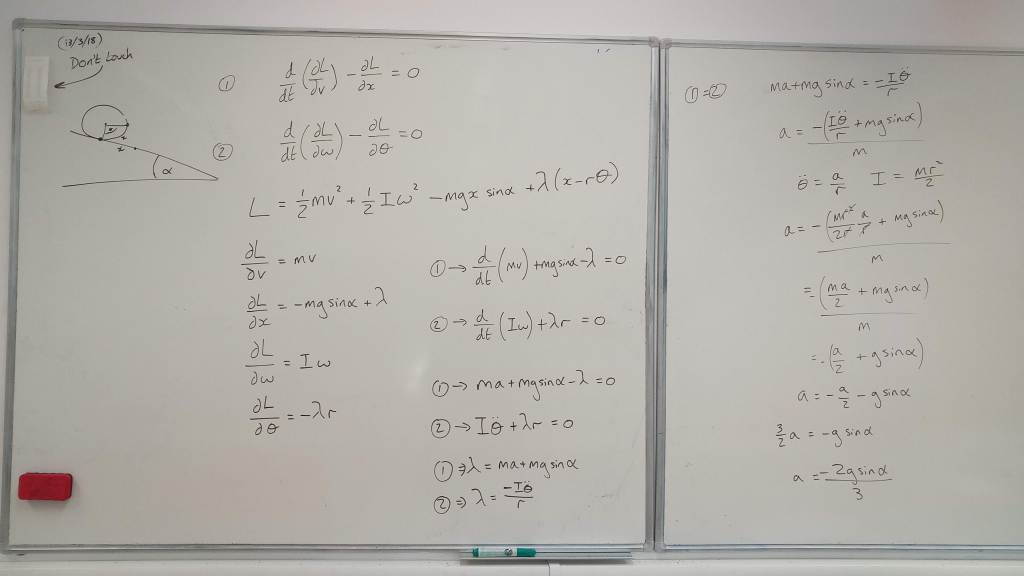 (13/3/18)
Don't touch
x
α
① d/dt (∂L/∂v) − ∂L/∂x = 0
② d/dt (∂L/∂ω) − ∂L/∂θ = 0
L = ½mv² + ½Iω² − mgx sinα + λ(x−rθ)
∂L/∂v = mv
∂L/∂x = −mg sinα + λ
∂L/∂ω = Iω
∂L/∂θ = −λr
① → d/dt (mv) + mgsinα − λ = 0
② → d/dt (Iω) + λr = 0
① → ma + mgsinα − λ = 0
② → Iθ̈ + λr = 0
① ⇒ λ = ma + mg sinα
② ⇒ λ = −Iθ̈/r
① = ② ma + mg sinα = −Iθ̈/r
a = −(Iθ̈/r + mg sinα)/m
θ̈ = a/r I = mr²/2
a = −(mr²/2r a/r + mg sinα)/m
= −(ma/2 + mg sinα)/m
= −(a/2 + g sinα)
a = −a/2 − g sinα
3/2 a = −g sinα
a = −2g sinα/3